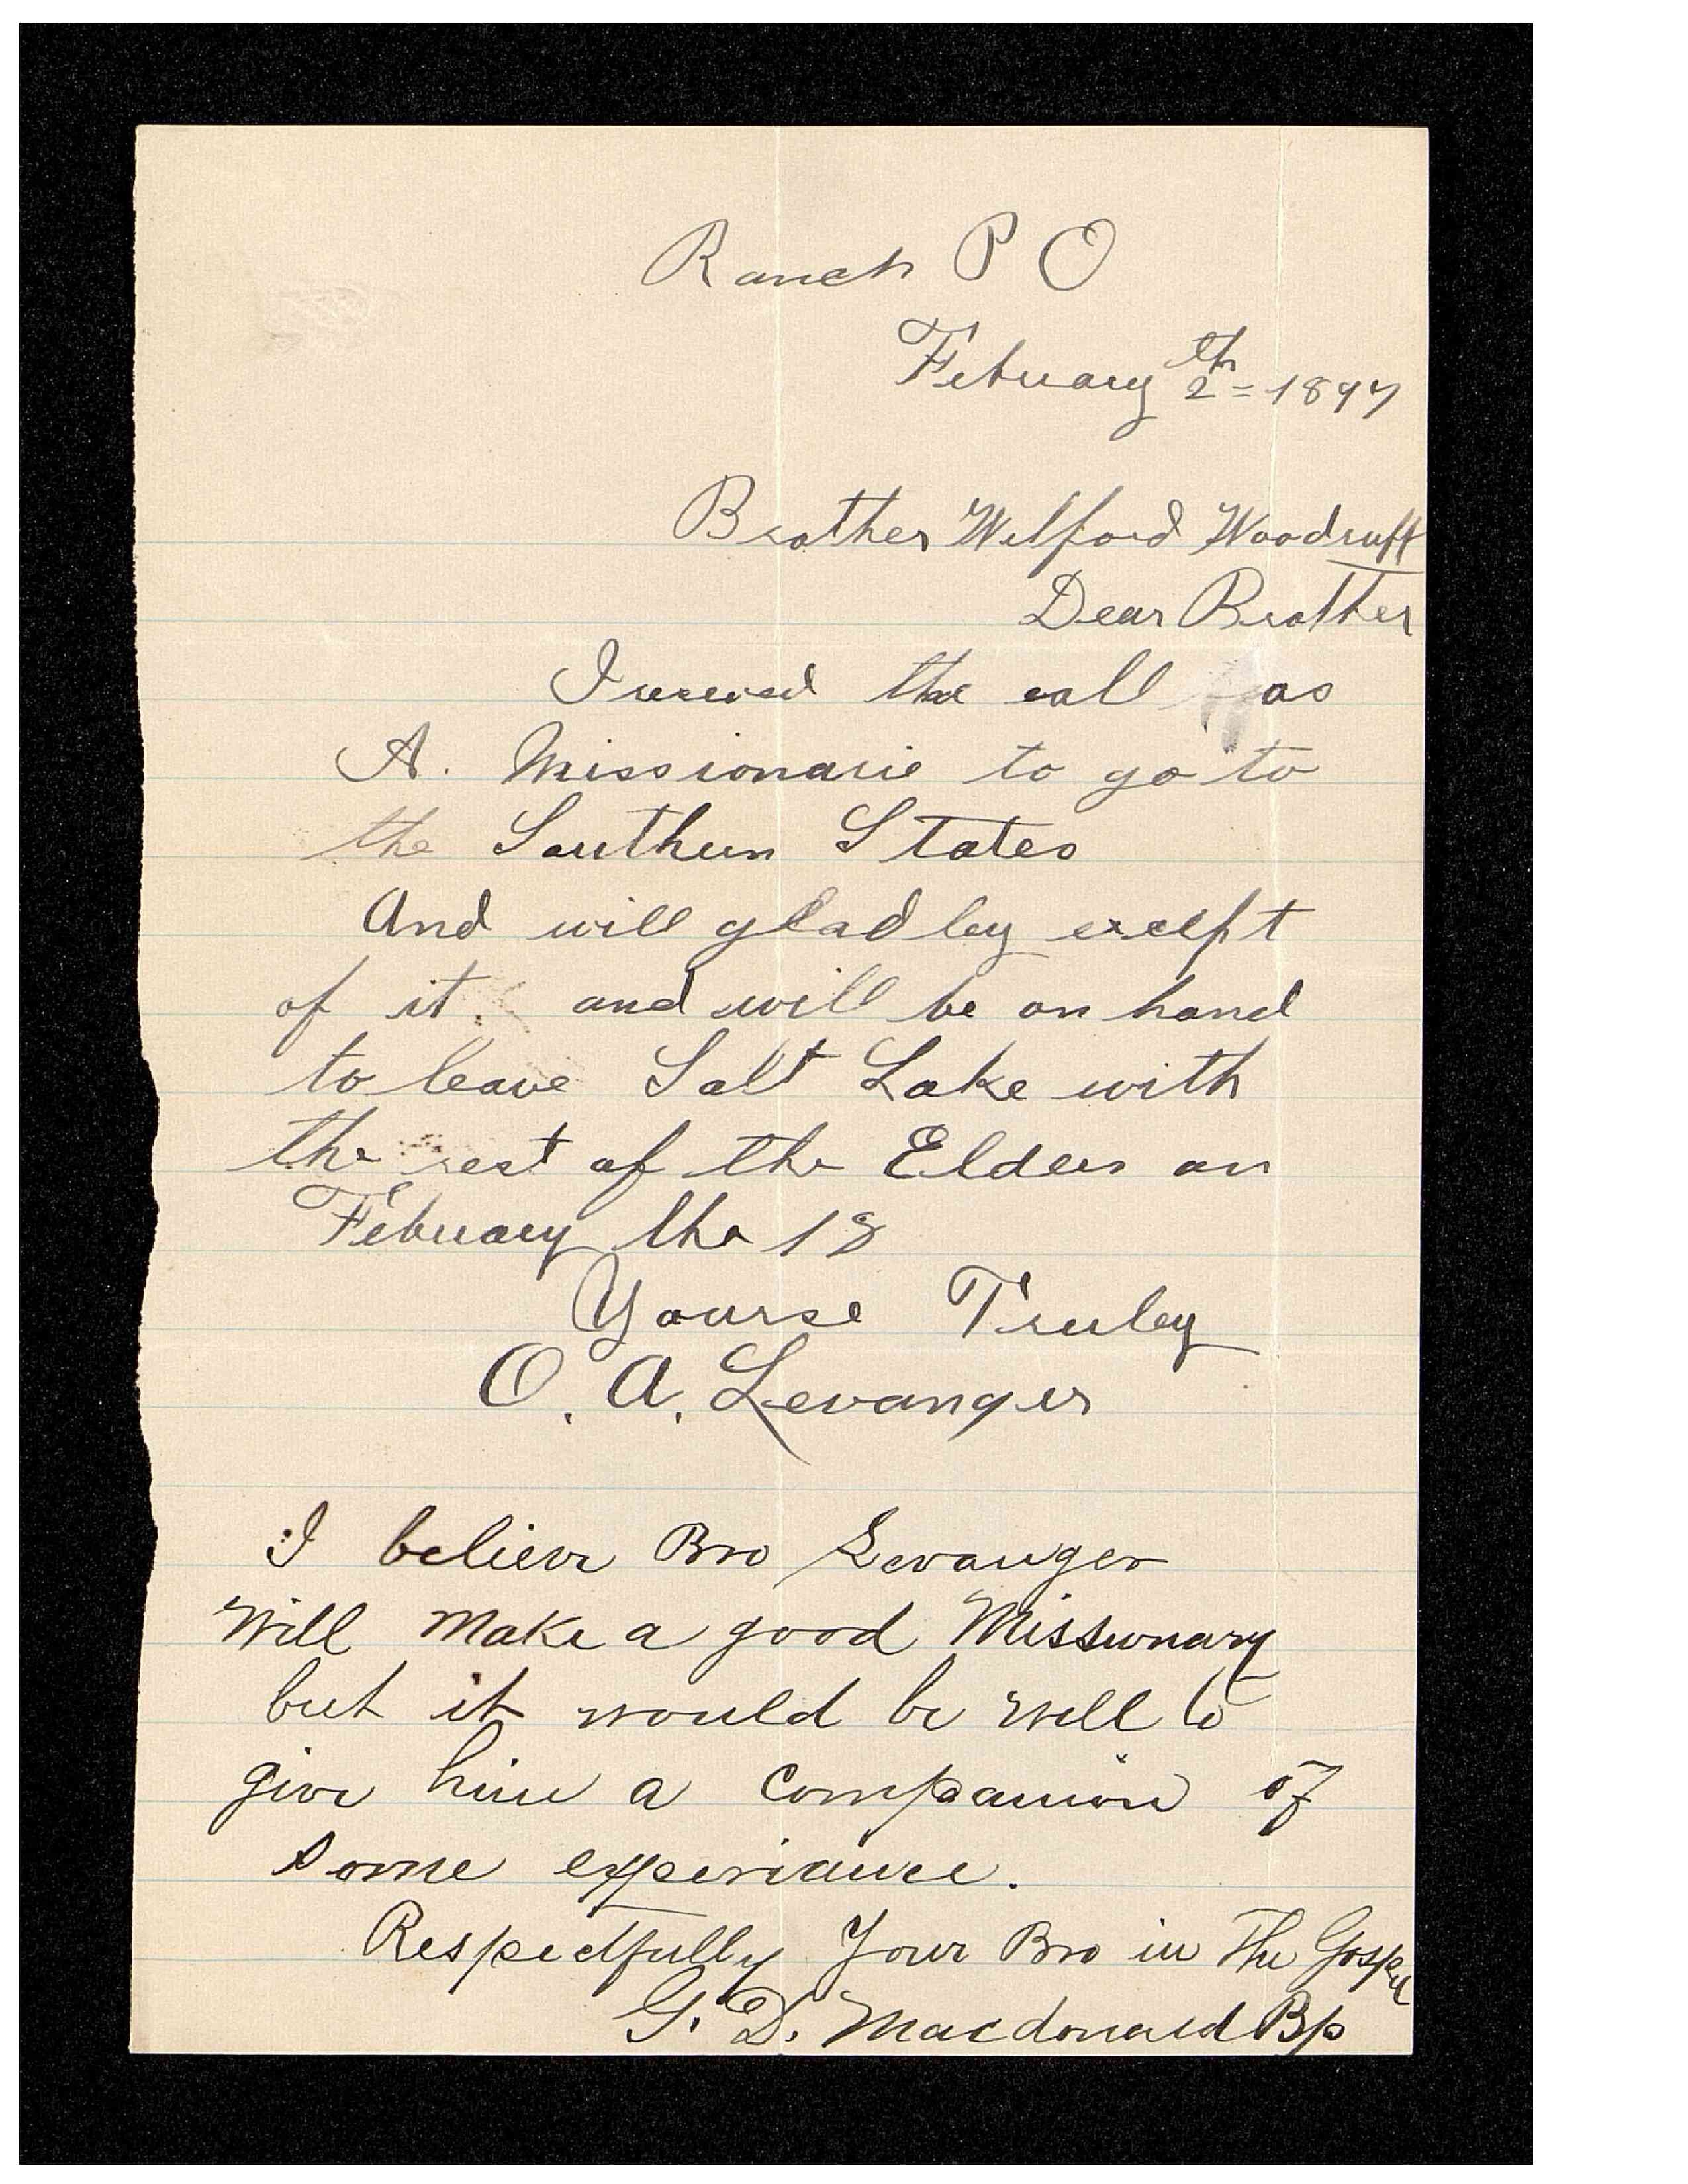 Ranch P O
Febuary 2th = 1897
Brother Wilford Woodruff
Dear Brother
I recived the call as
A. Missionarie to go to
the Southern States
And will gladley exceft
of it. and will be on hand
to leave Salt Lake with
the rest of the Elders on
Febuary the 18
Yourse Truley
O. A. Levanger
I believe Bro Levanger
Will Make a good Missionary
but it would be well to
give him a companion of
some experiance.
Respectfully Your Bro in The Gospel
G. D. Macdonald Bp